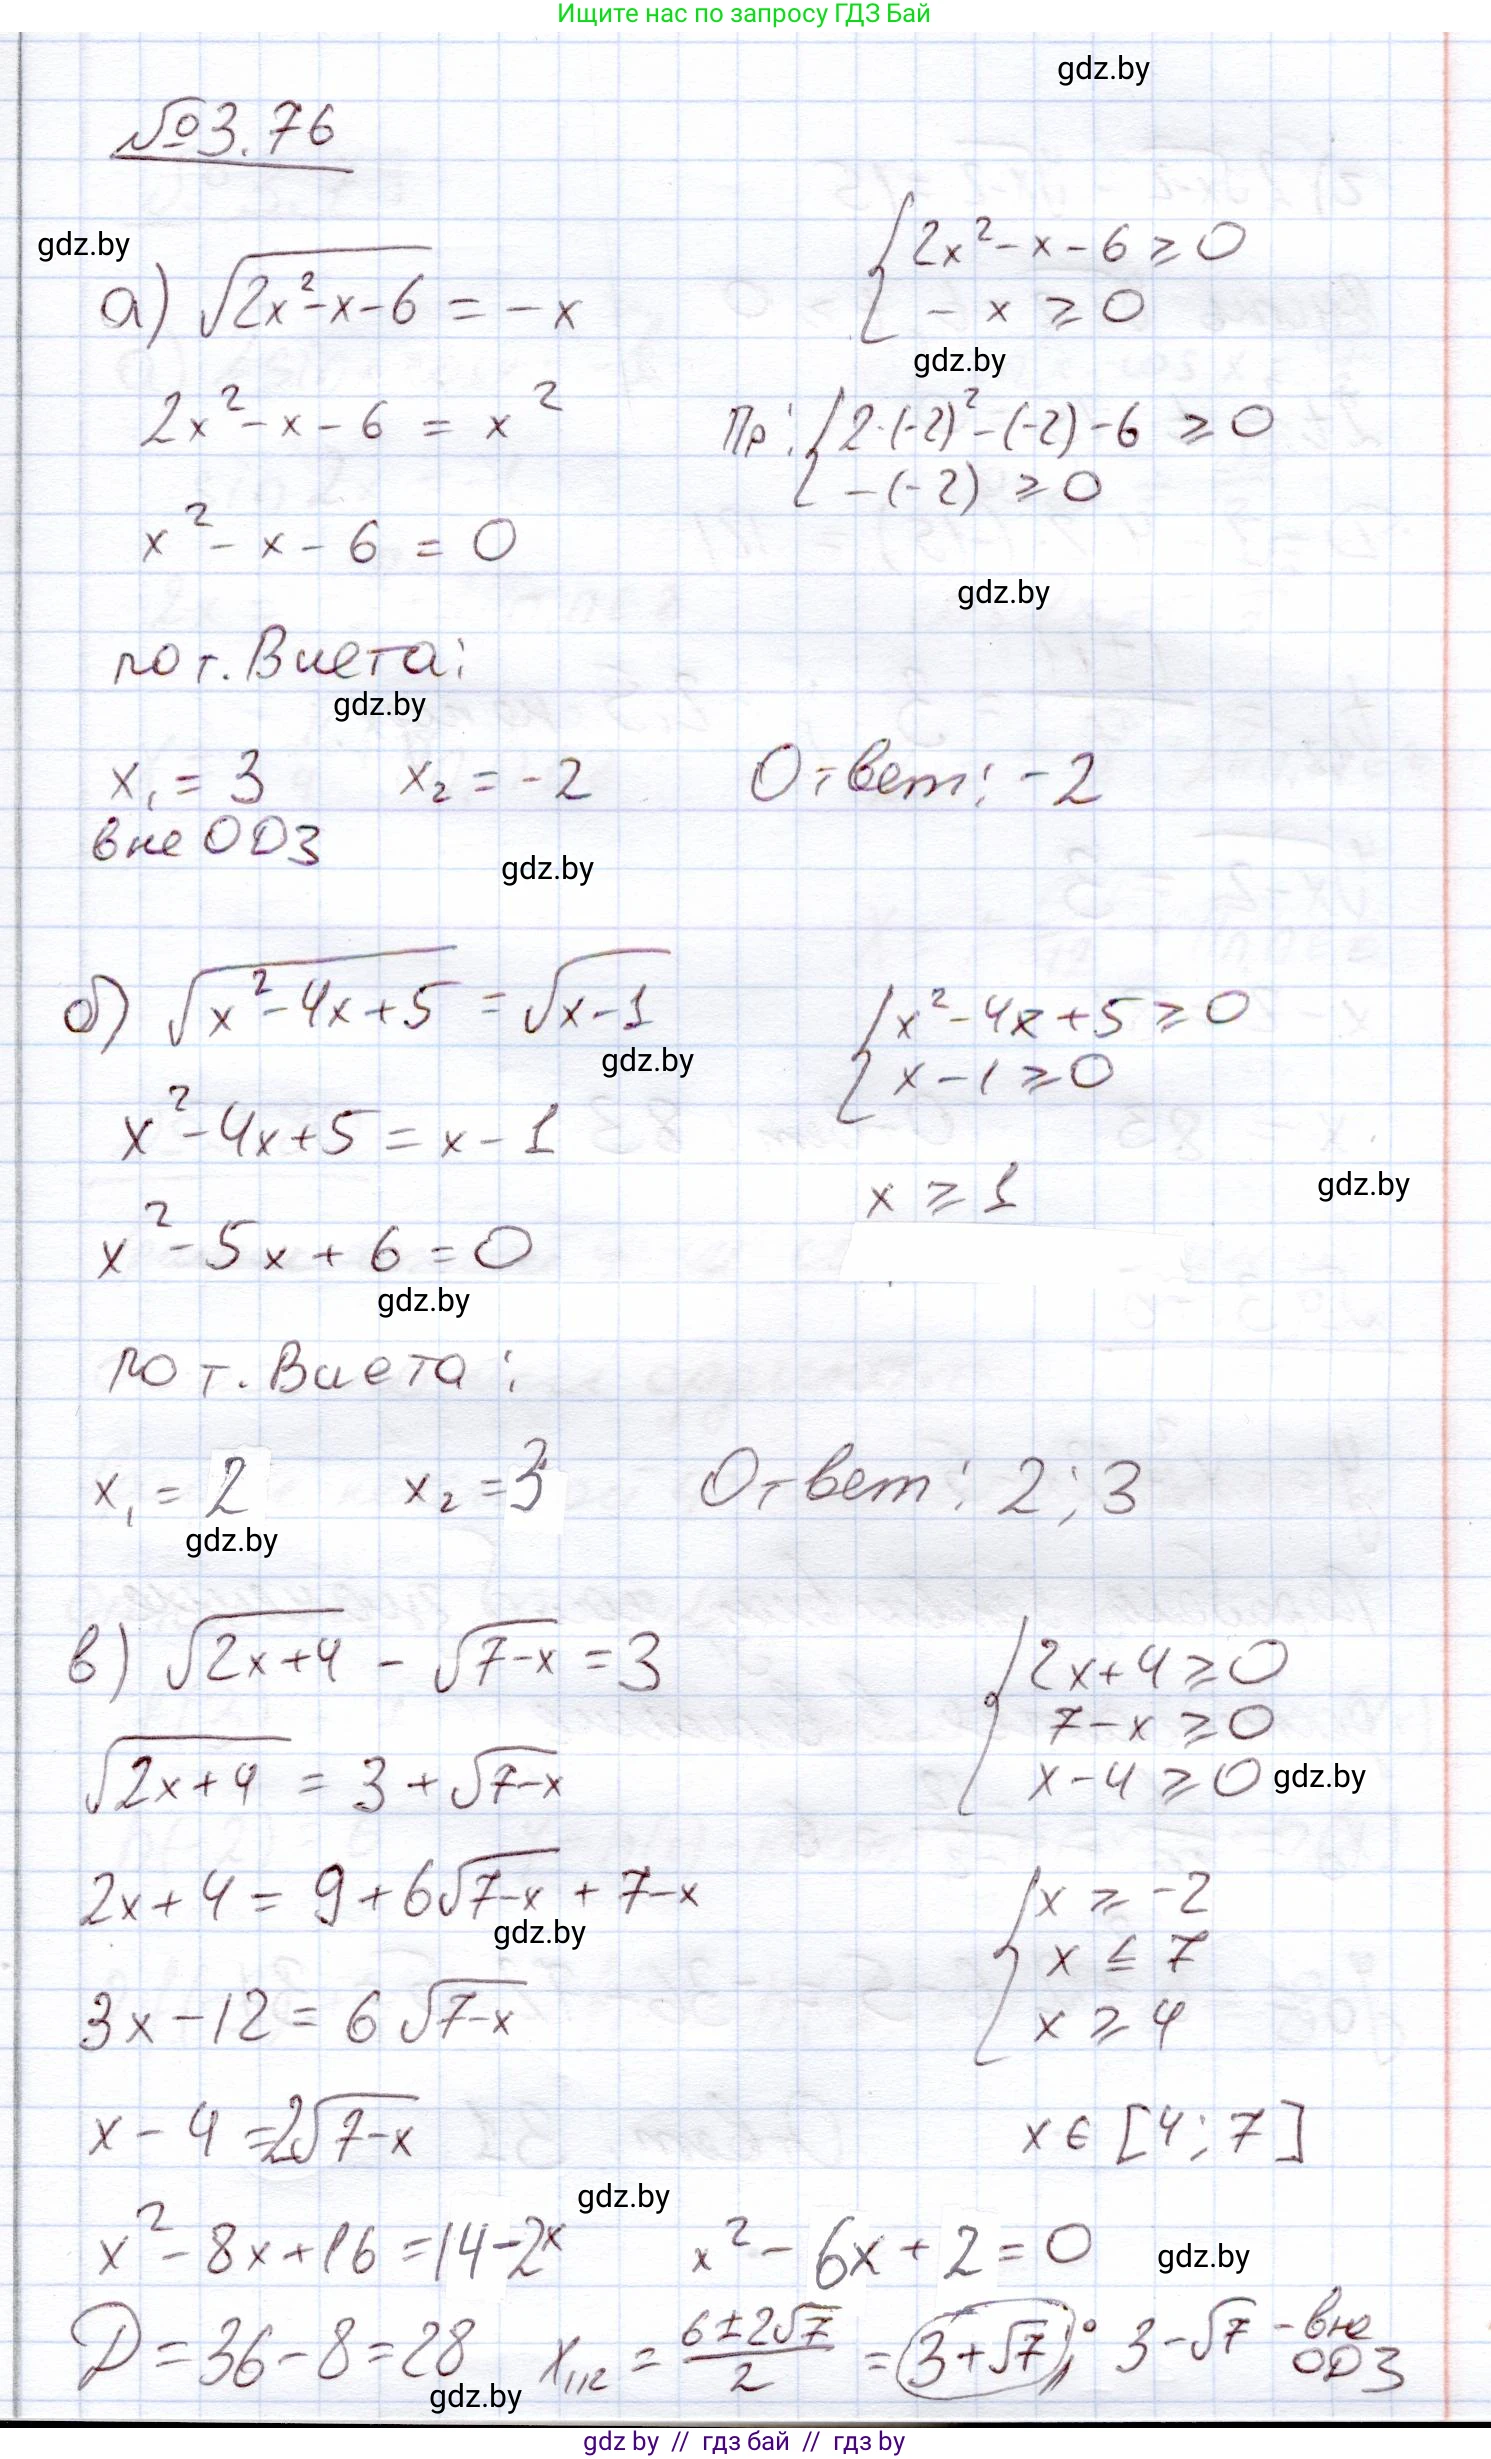 Ищите нас по запросу ГДЗ Бай
gdz.by
№3.76
gdz.by
а) √(2x²-x-6) = -x
{2x²-x-6 ≥ 0
-x ≥ 0
gdz.by
2x²-x-6 = x²
Пр: {2·(-2)²-(-2)-6 ≥ 0
-(-2) ≥ 0
x²-x-6 = 0
gdz.by
по т. Виета:
gdz.by
x₁ = 3 x₂ = -2
Ответ: -2
вне ОДЗ
gdz.by
б) √(x²-4x+5) = √(x-1)
{x²-4x+5 ≥ 0
x-1 ≥ 0
gdz.by
x²-4x+5 = x-1
x ≥ 1
gdz.by
x²-5x+6 = 0
gdz.by
по т. Виета:
x₁ = 2 x₂ = 3
Ответ: 2; 3
gdz.by
в) √(2x+4) - √(7-x) = 3
{2x+4 ≥ 0
7-x ≥ 0
x-4 ≥ 0
gdz.by
√(2x+4) = 3+√(7-x)
2x+4 = 9+6√(7-x)+7-x
gdz.by
{x ≥ -2
x ≤ 7
x ≥ 4
3x-12 = 6√(7-x)
x-4 = 2√(7-x)
x ∈ [4; 7]
gdz.by
x²-8x+16 = 14-2x
x²-6x+2 = 0
gdz.by
D = 36-8 = 28
x₁,₂ = (6±2√7)/2 = 3+√7; 3-√7 - вне ОДЗ
gdz.by
gdz by // гдз бай // гдз by